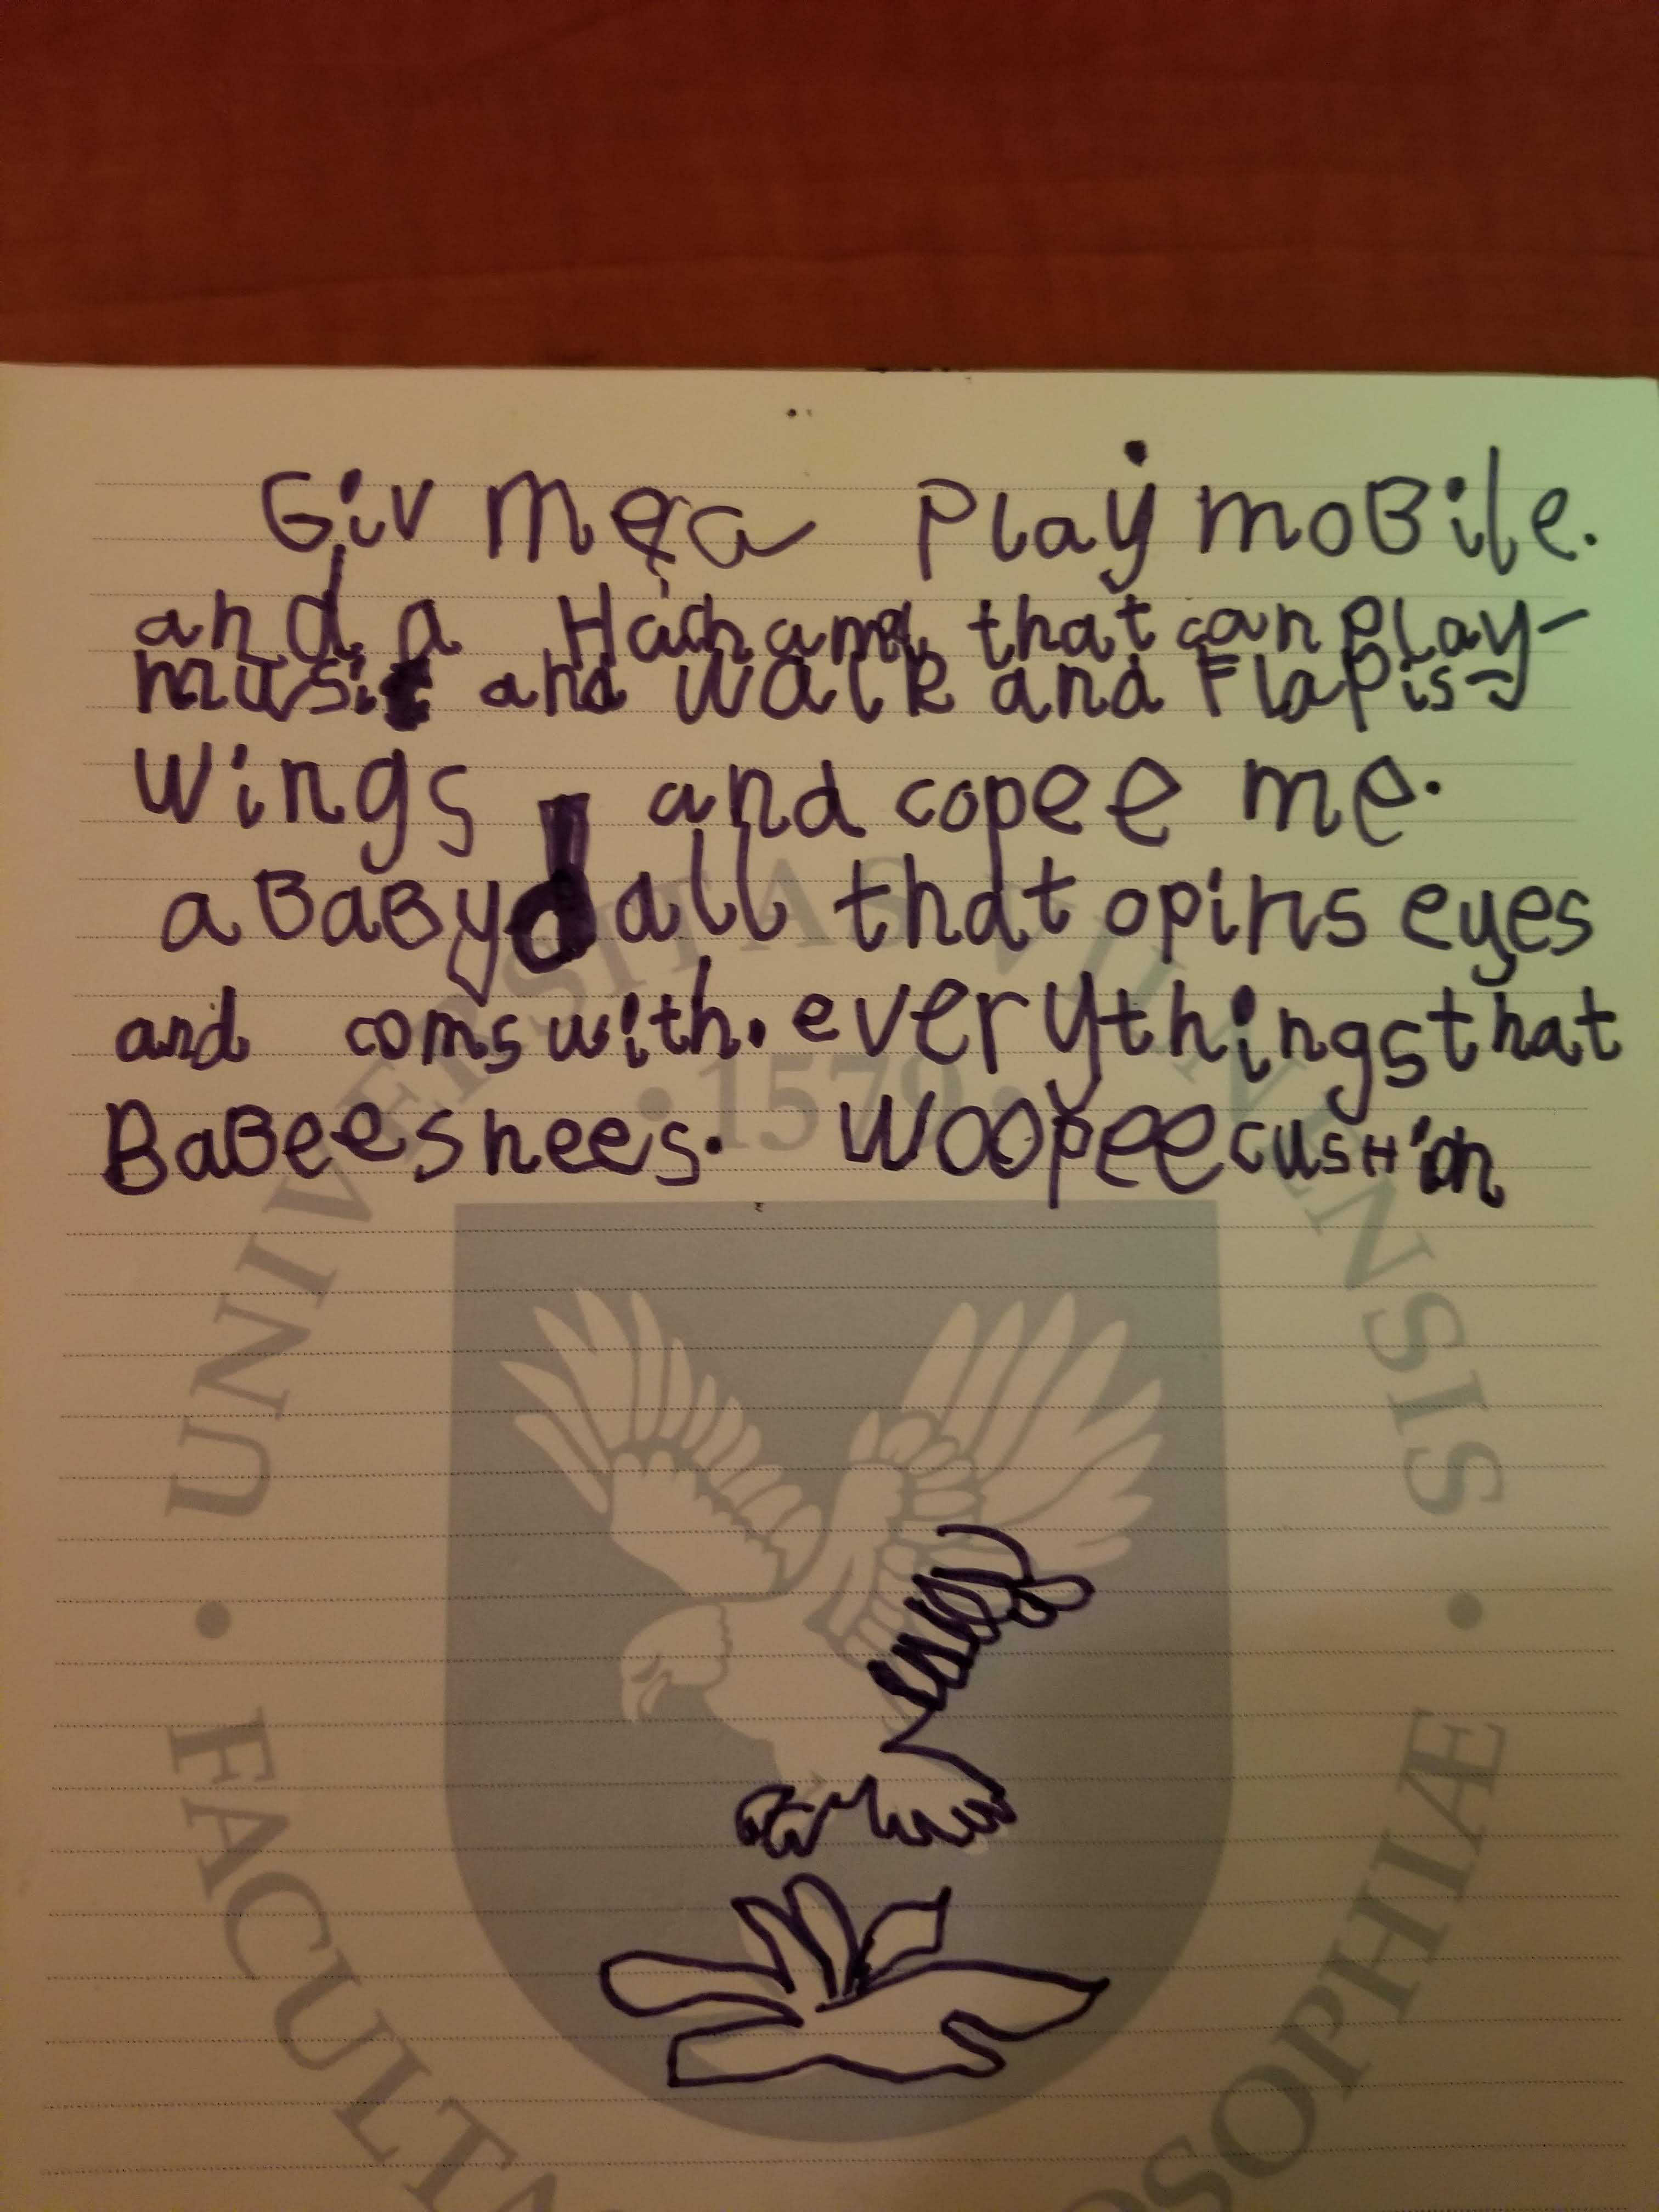 Giv me a Playmobile.
and a Hachamel that can play
music and walk and Flap is
wings and copee me.
a BaBy dall that opins eyes
and coms with. everythings that
BaBee snees. Woopee cushin
UNIVERSITAS VILNENSIS
• 1579 •
• FACULTA
SOPHIÆ •